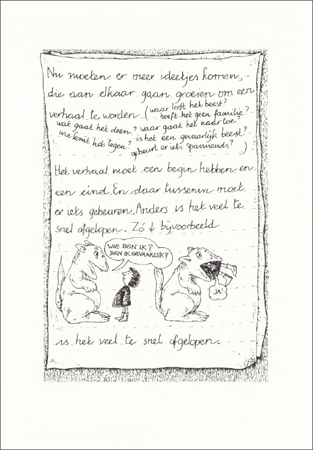 Nu moeten er meer ideetjes komen,
die aan elkaar gaan groeien om een
verhaal te worden (waar leeft het beest?
heeft het geen familie?
wat gaat het doen? waar gaat het naar toe?
wie komt het tegen? is het een gevaarlijk beest?
gebeurt er iets spannends?)
Het verhaal moet een begin hebben en
een eind. En daar tussenin moet
er iets gebeuren. Anders is het veel te
snel afgelopen. Zó ↓ bijvoorbeeld
WIE BEN IK?
BEN IK GEVAARLIJK?
JA!
is het veel te snel afgelopen.